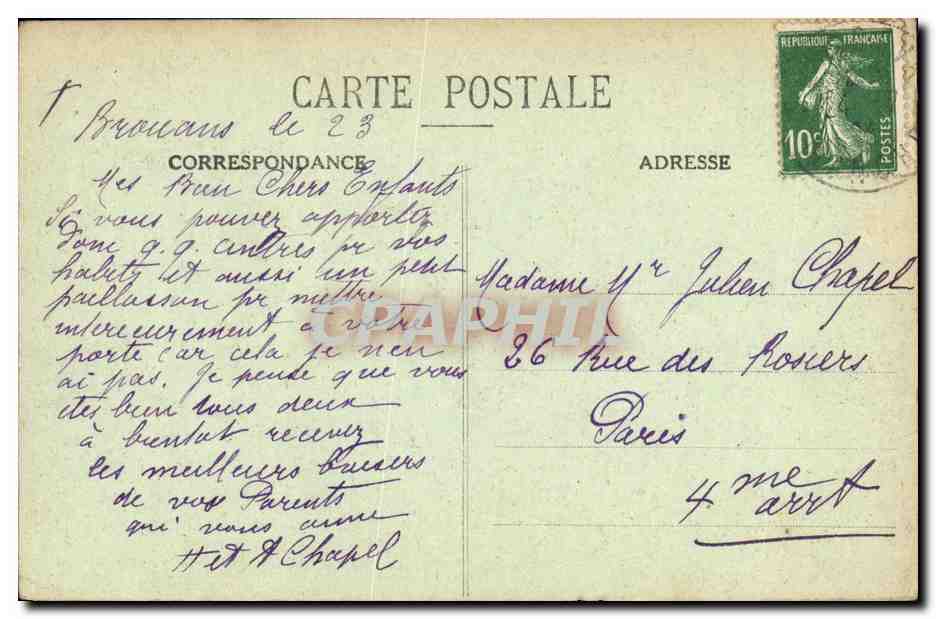 REPUBLIQUE FRANÇAISE
10c
POSTES
CARTE POSTALE
Brouans le 23
CORRESPONDANCE
ADRESSE
Mes Bien Chers Enfants
Si vous pouvez apporter
donc q.q. cintres pr vos
habits et aussi un petit
paillasson pr mettre
interieurement à votre
porte car cela je n'en
ai pas. Je pense que vous
etes bien tous deux
à bientot recevez
les meilleurs baisers
de vos Parents
qui vous aime
H et A Chapel
Madame Mr Julien Chapel
26 Rue des Rosiers
Paris
4me arrt
CPAPHIL